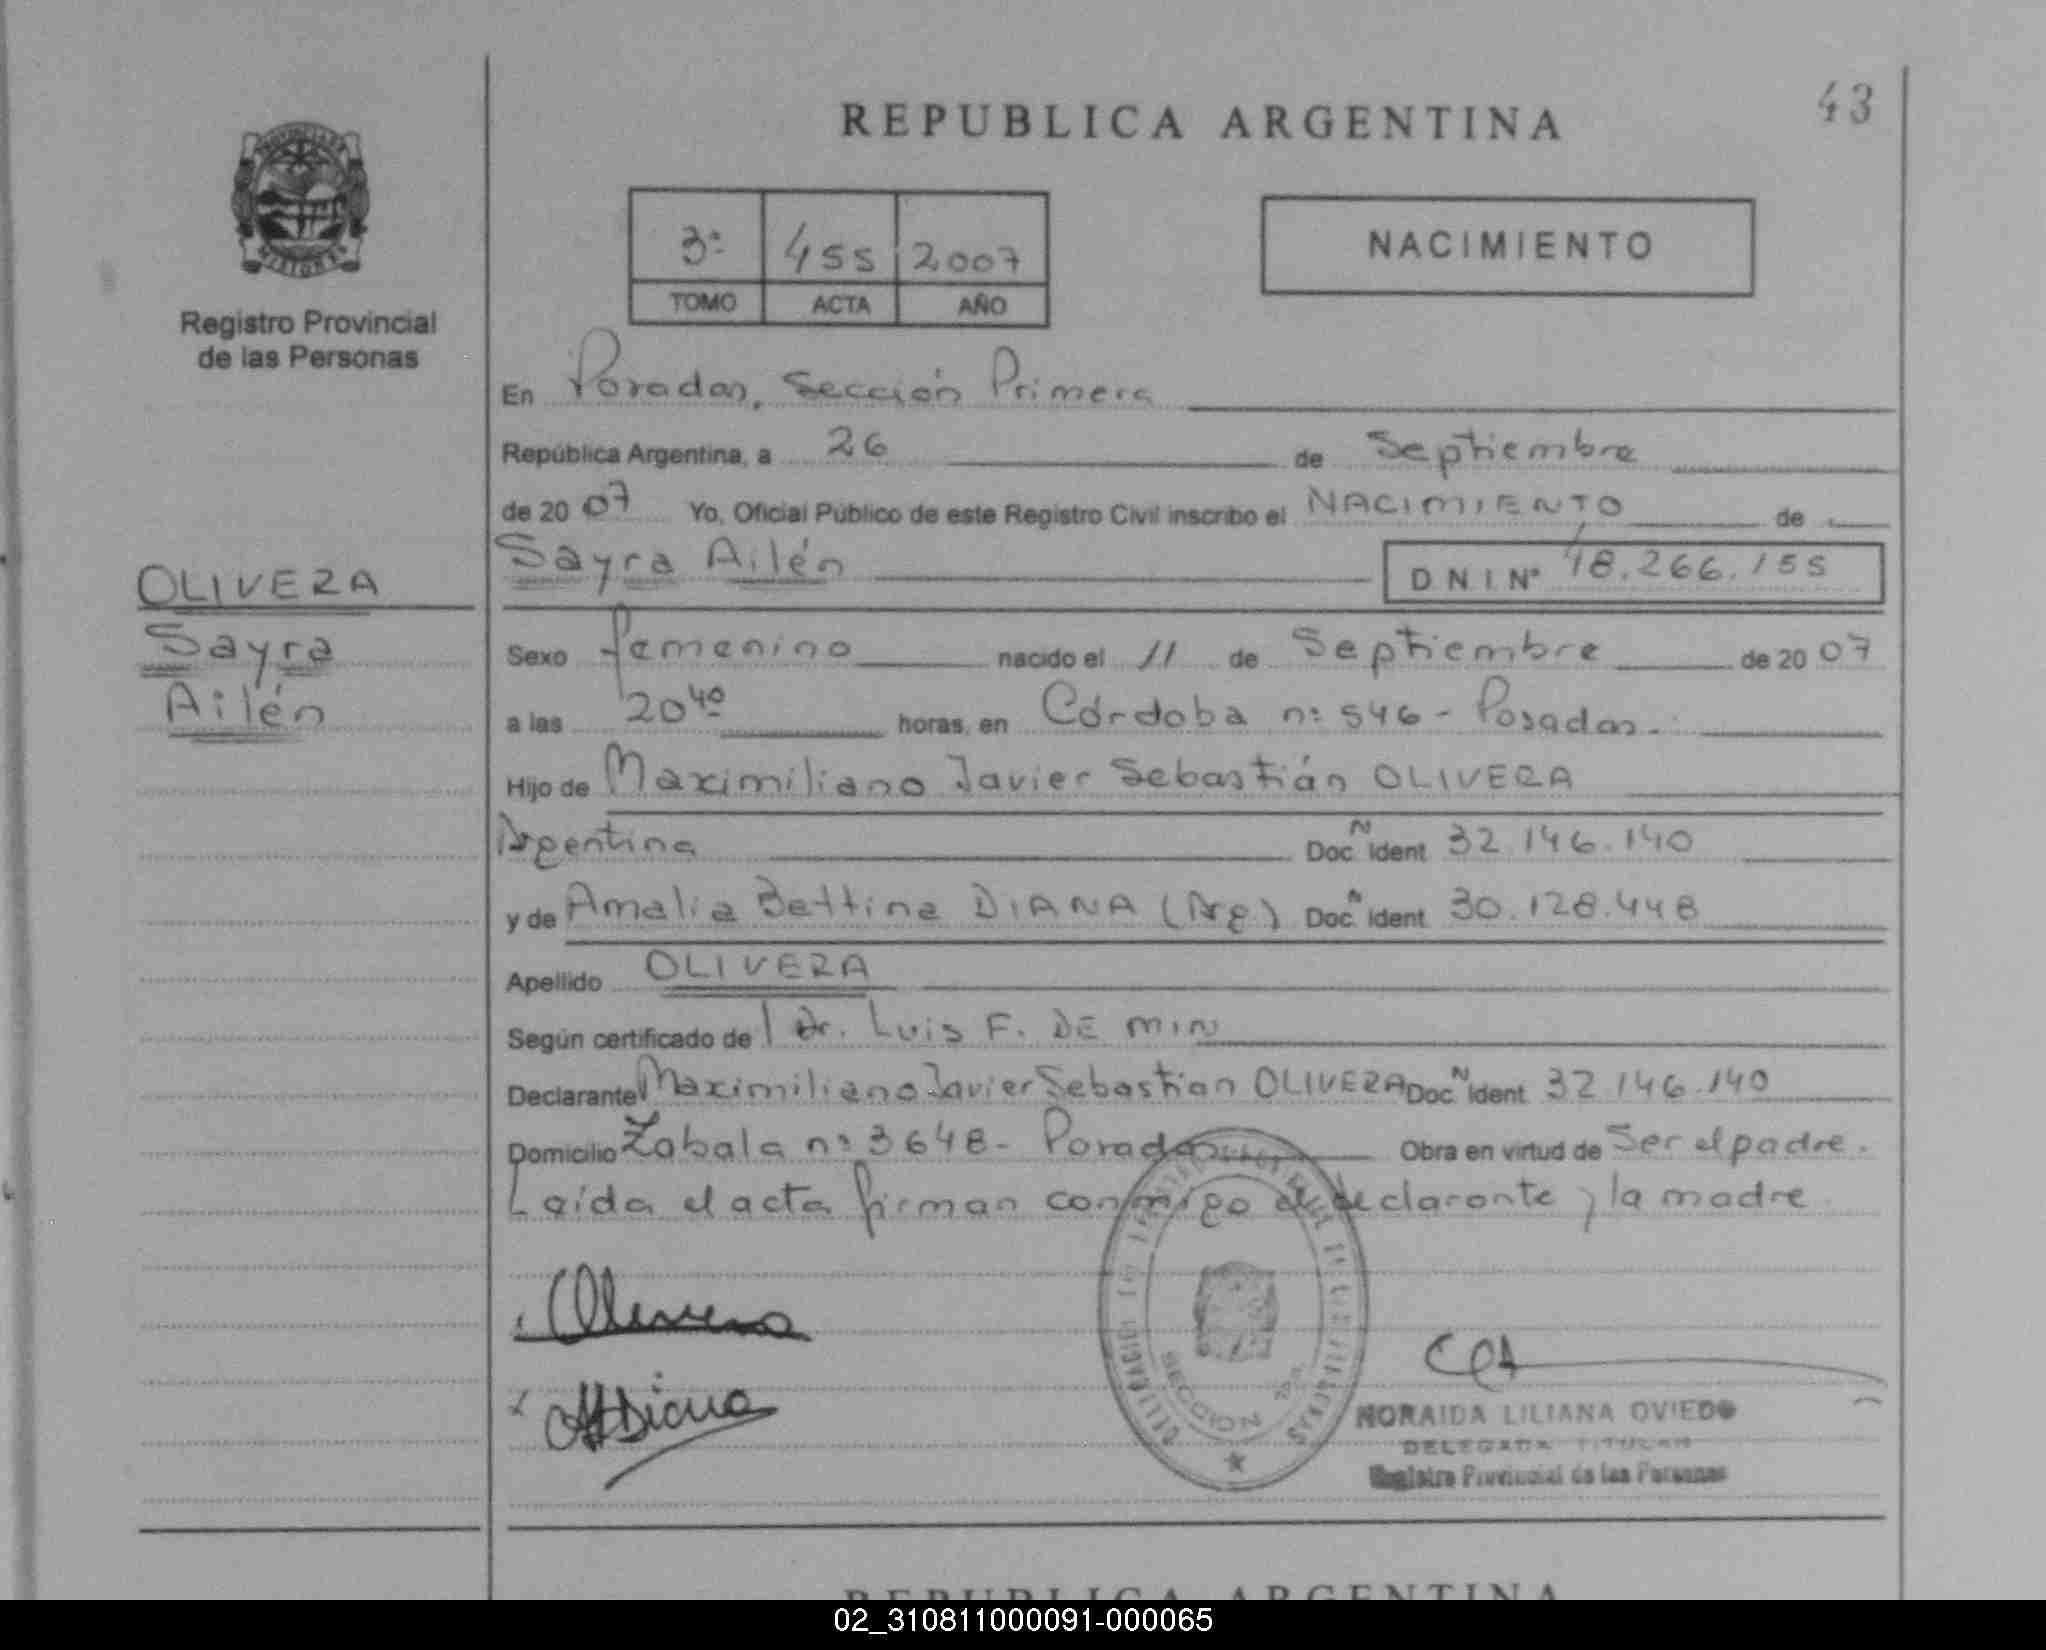 43
REPUBLICA ARGENTINA
PROVINCIA DE
MISIONES
3ª 455 2007
TOMO ACTA AÑO
NACIMIENTO
Registro Provincial
de las Personas
En Posadas, Sección Primera
República Argentina, a 26 de Septiembre
de 20 07 Yo, Oficial Público de este Registro Civil inscribo el NACIMIENTO de
Sayra Ailén D N I Nº 48.266.155
OLIVERA
Sayra
Ailén
Sexo femenino nacido el 11 de Septiembre de 20 07
a las 20 40 horas, en Córdoba nº 546 - Posadas.
Hijo de Maximiliano Javier Sebastián OLIVERA
Argentina Doc N Ident 32.146.140
y de Amalia Bettina DIANA (Arg) Doc N Ident 30.128.448
Apellido OLIVERA
Según certificado de Dr. Luis F. DE MIN
Declarante Maximiliano Javier Sebastian OLIVERA Doc N Ident 32.146.140
Domicilio Zabala nº 3648 - Posadas Obra en virtud de Ser el padre.
Leída el acta firman conmigo el declarante y la madre
Olivera
ABDiana
SECCION
NORAIDA LILIANA OVIEDO
DELEGADA TITULAR
Registro Provincial de las Personas
REPUBLICA ARGENTINA
02_310811000091-000065